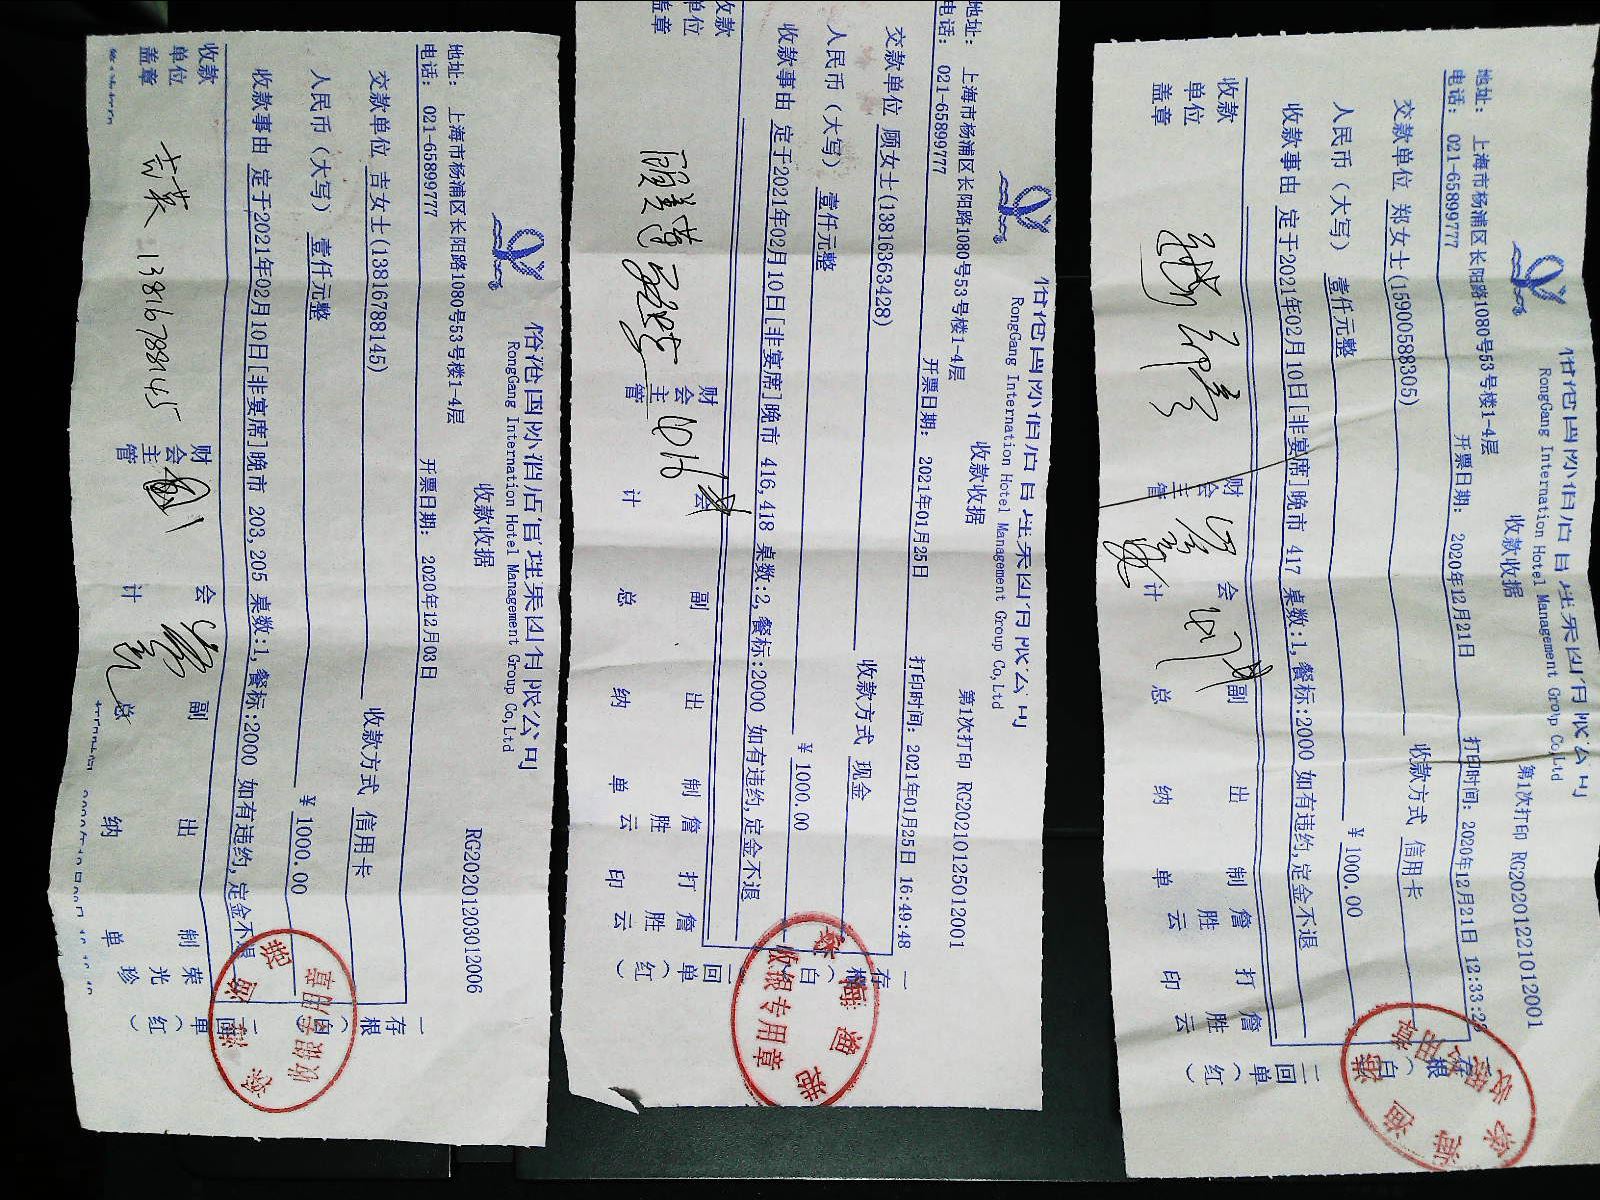 RongGang International Hotel Management Group Co,Ltd
收款收据
RG20201203012006
地址: 上海市杨浦区长阳路1080号53号楼1-4层
电话: 021-65899777
开票日期: 2020年12月03日
交款单位 吉女士(13816788145)
收款方式 信用卡
人民币(大写) 壹仟元整
￥1000.00
收款事由 定于2021年02月10日[非宴席]晚市 203,205 桌数:1,餐标:2000 如有违约,定金不退
收款单位盖章
财会主管
会计
副总
出纳
制单
荣光珍
13816788145
一存根(白)
二回单(红)
深海渔港
收银专用章
RongGang International Hotel Management Group Co,Ltd
收款收据
第1次打印 RG20210125012001
地址: 上海市杨浦区长阳路1080号53号楼1-4层
电话: 021-65899777
开票日期: 2021年01月25日
打印时间: 2021年01月25日 16:49:48
交款单位 顾女士(13816363428)
收款方式 现金
人民币(大写) 壹仟元整
￥1000.00
收款事由 定于2021年02月10日[非宴席]晚市 416,418 桌数:2,餐标:2000 如有违约,定金不退
收款单位盖章
财会主管
会计
副总
出纳
制单
詹胜云
打印
詹胜云
一存根(白)
二回单(红)
深海渔港
收银专用章
RongGang International Hotel Management Group Co,Ltd
收款收据
第1次打印 RG20201221012001
地址: 上海市杨浦区长阳路1080号53号楼1-4层
电话: 021-65899777
开票日期: 2020年12月21日
打印时间: 2020年12月21日 12:33:23
交款单位 郑女士(15900588305)
收款方式 信用卡
人民币(大写) 壹仟元整
￥1000.00
收款事由 定于2021年02月10日[非宴席]晚市 417 桌数:1,餐标:2000 如有违约,定金不退
收款单位盖章
财会主管
会计
副总
出纳
制单
詹胜云
打印
詹胜云
一存根(白)
二回单(红)
深海渔港
收银专用章